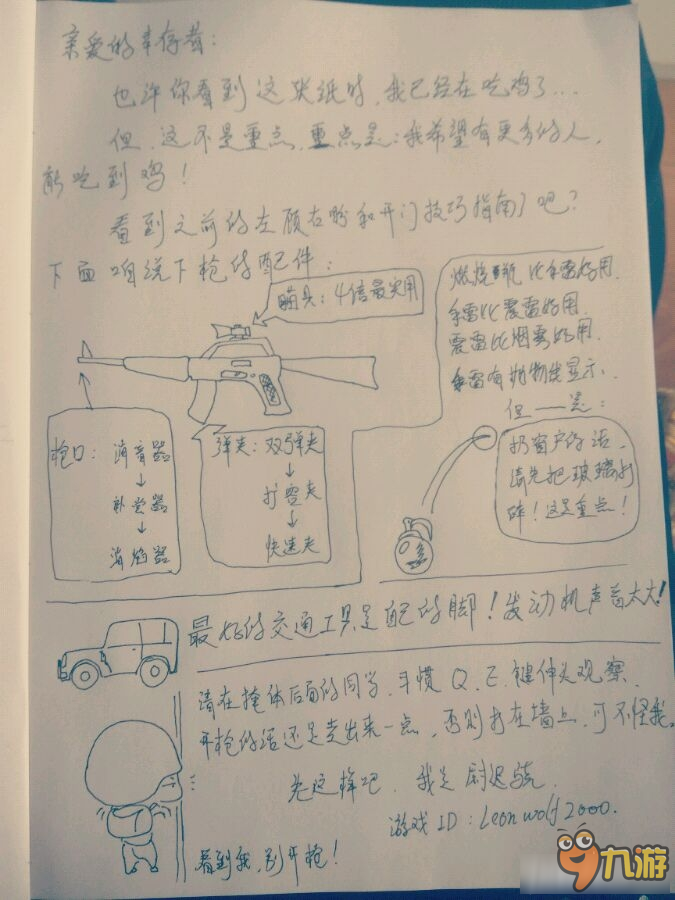 亲爱的幸存者：
也许你看到这张纸时，我已经在吃鸡了...
但，这不是重点，重点是：我希望有更多的人，
能吃到鸡！
看到之前的左顾右盼和开门技巧指南了吧？
下面咱说下枪的配件：
瞄具：4倍最实用
燃烧瓶比手雷好用.
手雷比震雷好用.
震雷比烟雾好用.
手雷有抛物线显示.
但——是：
扔窗户的话，
请先把玻璃打
碎！这是重点！
枪口：消音器
↓
补偿器
↓
消焰器
弹夹：双弹夹
↓
扩容夹
↓
快速夹
最好的交通工具是自己的脚！发动机声音太大！
请在掩体后面的同学，习惯Q、E键伸头观察.
开枪的话还是走出来一点，否则打在墙上，可不怪我。
先这样吧，我是尉迟
游戏ID：Leonwolf2000.
看到我，别开枪！
九游